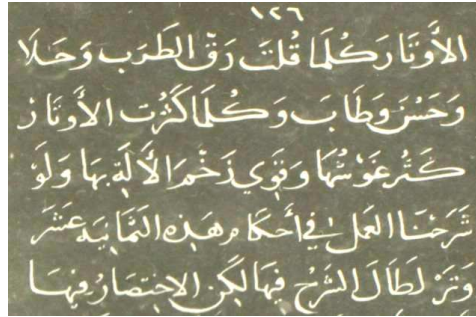 ١٢٦
الأوتار كلما قلت رق الطرب وحلا
وحسن وطاب وكلما كثرت الأوتار
كثر غوشها وقوي زخم الألة بها ولو
شرحنا العمل في أحكام هذه الثمانيه عشر
وتر لطال الشرح فيها لكن الاختصار فيها